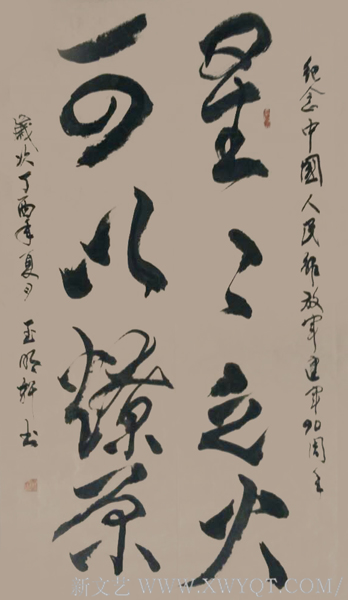 纪念中國人民解放军建军90周年
星〻之火
可以燎原
歲次丁酉年夏月 王明轩书
新文艺 WWW.XWYQT.COM/